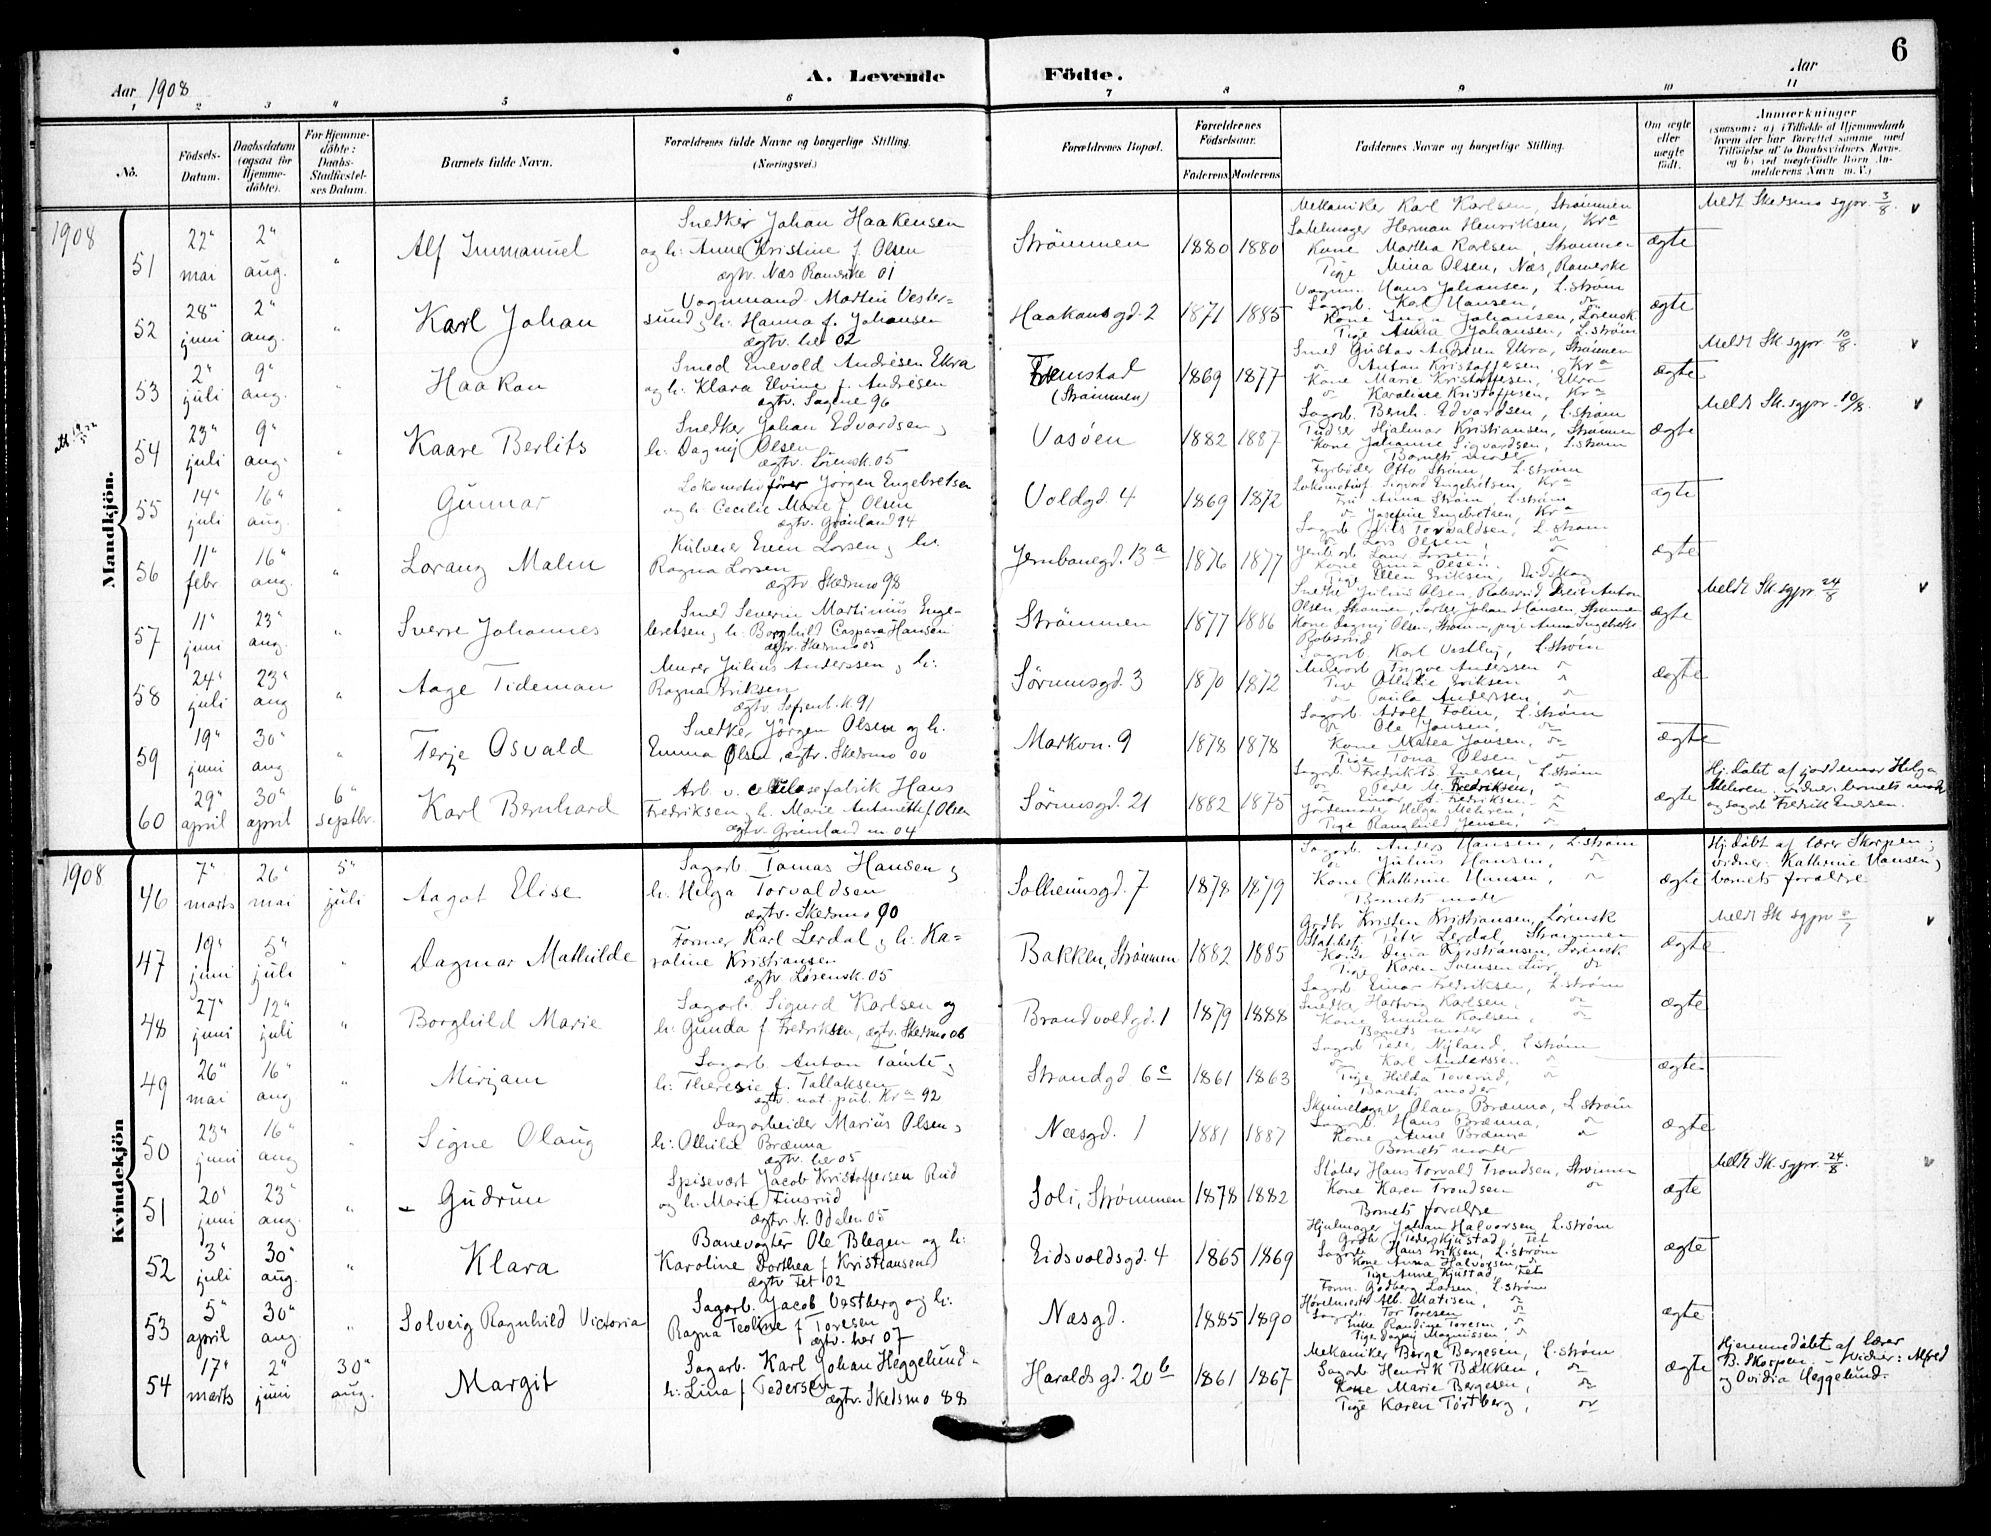 6
A. Levende Födte.
Aar 1908
Aar
1 2 3 4 5 6 7 8 9 10 11
No.
Födsels-Datum.
Daabsdatum (ogsaa for Hjemmedöbte).
For Hjemmedöbte: Daabs-Stadfæstelses Datum.
Barnets fulde Navn.
Forældrenes fulde Navne og borgerlige Stilling. (Næringsvei.)
Forældrenes Bopæl.
Forældrenes Födselsaar.
Faderens Moderens
Faddernes Navne og borgerlige Stilling.
Om ægte eller uægte födt.
Anmærkninger
Mandkjön.
1908
51 22" mai 2" aug. " Alf Immanuel
Snedker Johan Haakensen
og h: Anne Kristine f. Olsen
ægtv. Næs Romerike 01
Strömmen 1880 1880
Mekaniker Karl Karlsen, Strömmen
Salelmager Herman Henriksen, Kra
Kone Martha Karlsen, Strømmen
Pige Mina Olsen, Næs, Romerike
ægte
Meldt Skedsmo sgpr. 3/8. v
52 28" juni 2" aug. " Karl Johan
Vognmand Martin Vester=
sund, h. Hanna f. Johansen
ægtv. her 02
Haakonsgd. 2 1871 1885
Vognm. Hans Johansen, L.strøm
Sagarb. Karl Hansen,
Pige Anna Johansen, L.strøm
ægte
53 2" juli 9" aug. " Haakon
Smed Enevold Andresen Ekra
og h: Klara Elvine f. Andresen
ægtv. Sagene 96
(Strømmen) 1869 1877
Smed Gustav Andresen Ekra, Strømmen
Anton Kristoffersen, Kra
Kone Marie Kristoffersen, Ekra
Karoline Kristoffersen, Kra
ægte
Meldt Sk. sgpr 10/8. v
54 23" juli 9" aug. " Kaare Berlits
Snedker Johan Edvardsen,
h. Dagny Olsen
ægtv. Lörensk. 05
Vasöen 1882 1887
Sagarb. Bernh. Edvardsen, L.strøm
Hjalmar Kristiansen, Strømmen
Kone Johanne Sigvardsen, L.strøm
Barnets moder
ægte
Meldt Sk. sgpr. 10/8. v
55 14" juli 16" aug. " Gunnar
Lokomotivfører Jörgen Engebretsen
og h. Cecilie Marie f. Olsen
ægtv. Grønland 94
Voldgd. 4 1869 1872
Fyrbøder Otto Strøm, L.strøm
Lokomotivf. Sigvard Engebretsen, Kra
Fru Anna Strøm, L.strøm
Josefine Engebretsen, Kra
ægte
56 11" febr 16" aug. " Lorang Malm
Even Larsen, h.
Ragna Larsen
ægtv Skedsmo 98
Jernbanegd. 13a 1876 1877
Sagarb Nils Torvaldsen, L.strøm
Lars Olsen
Kone Anna Olsen
Pige Ellen Eriksen
ægte
57 11" juni 23" aug. " Sverre Johannes
Smed Severin Martinius Enge=
bretsen, h. Borghild Caspara Hansen
ægtv. Skedsmo 05
Strömmen 1877 1886
Snedker Julius Olsen, Robsrud, Dreier Anton
Olsen, Strømmen, Johan Hansen, Strømmen
Kone Dagny Olsen, Strømm, pige Anna Ingebretse
Robsrud
ægte
Meldt Sk. sgpr. 24/8 v
58 24" juli 23" aug " Aage Tideman
Murer Julius Anderssen, h:
Ragna Eriksen
ægtv. Sofienb. k. 91
Sörumsgd. 3 1870 1872
Sagarb. Karl Vestby, L.strøm
Trygve Anderssen
Pige Othilie Eriksen
Paula Anderssen
ægte
59 19" juni 30" aug " Terje Osvald
Snedker Jörgen Olsen og h.
Emma Olsen, ægtv. Skedsmo 00
Markvn. 9 1878 1878
Sagarb. Adolf Folin, L.strøm
Ole Jonsen,
Kone Matea Jonsen,
Pige Tona Olsen
ægte
60 29" april 30" april 6" septbr. Karl Bernhard
Arb. v. cellulosefabrik Hans
Fredriksen, h. Marie Antonette f. Olsen
ægtv. Grønland m 04
Sörumsgd. 21 1882 1875
Sagarb. Fredrik Enersen, L.strøm
Peder M. Fredriksen,
Einar A. Fredriksen
Jordemoder Helga Mehren,
Pige Ranghild Jensen,
ægte
Hj.døbt af jordemor Helga
Mehren, vidner: barnets mor
og sagarb Fredrik Enersen.
Kvindekjön
1908
46 7" marts 26" mai 5" juli Aagot Elise
Sagarb. Tomas Hansen,
h. Helga Torvaldsen
ægtv. Skedsmo 00
Solheimsgd. 7 1878 1879
Sagarb. Anders Hansen, L.strøm
Julius Hansen,
Kone Kathrine Hansen,
Barnets moder
ægte
Hj.døbt af lærer Skorpen;
vidner: Kathrine Hansen,
barnets forældre
47 19" juni 5" juli " Dagmar Mathilde
Former Karl Lerdal, h: Ka=
roline Kristiansen
ægtv Lørensk. 05
Bakken, Strømmen 1882 1885
Grdbr Kristen Kristiansen, Lørensk
Peter Lerdal, Strømmen
Kone Dina Kristiansen, Lørensk
Pige Karen Svensen
ægte
Meldt Sk sgpr v
48 27" juni 12" juli " Borghild Marie
Sagarb. Sigurd Karlsen og
h: Gunda f Fredriksen, ægtv. Skedsmo 06
Brandvoldgd. 1 1879 1888
Sagarb Einar Fredriksen, L.strøm
Snedker Hartvig Karlsen,
Kone Emma Karlsen,
Barnets moder
ægte
49 26" mai 16" aug " Mirjam
Sagarb Anton Tömte,
h: Theresie f. Tallaksen
ægtv. not. pub. Kra 92
Strandgd 6c 1861 1863
Sagarb Peder Nyland, L.strøm
Karl Anderssen
Pige Hilda Toverud,
Barnets moder
ægte
50 23" juni 16" aug " Signe Olaug
Dagarbeider Marius Olsen,
h: Othilie Brænna
ægtv. her 05
Næsgd. 1 1881 1887
Olaus Brænna, L.strøm
Sagarb. Hans Brænna,
Kone Anne Brænna
Barnets moder
ægte
51 20" juni 23" aug. " Gudrun
Spisevært Jacob Kristoffersen Rud
og h. Marie Finsrud
ægtv. N. Odalen 05
Soli, Strømmen 1878 1882
Støber Hans Torvald Trondsen, Strømmen
Kone Karen Trondsen
Barnets forældre
ægte
Meldt Sk. sgpr. 24/8. v
52 3" juli 30" aug. " Klara
Banevogter Ole Blegen og h:
Karoline Dorthea f Kristiansen
ægtv Fet 02
Eidsvoldsgd. 4 1865 1869
Hjulmager Johan Halvorsen, L.strøm
Grdbr Peder Kjustad, Fet
Sagarb Hans Eriksen, L.strøm
Kone Anna Halvorsen,
Pige Anne Kjustad, Fet
ægte
53 5" april 30" aug. " Solveig Ragnhild Victoria
Sagarb. Jacob Vestberg og h:
Ragna Teoline f Toresen
ægtv. her 07
Næsgd. 1885 1890
Form. Godberg Larsen, L.strøm
Alb. Matisen,
Tor Toresen
Enke Randine Toresen,
Pige Dagny Magnussen,
ægte
54 17" marts 2" juni 30" aug. Margit
Sagarb. Karl Johan Heggelund
h: Lina f Pedersen
ægtv. Skedsmo 88
Haraldsgd. 20b 1861 1867
Mekaniker Børge Bergesen, L.strøm
Sagarb Henrik Bakken,
Kone Marie Bergesen,
Pige Karen Törtberg,
ægte
Hjemmedøbt af lærer
B. Skorpen, - vidner: Alfred
og Ovidia Heggelund.